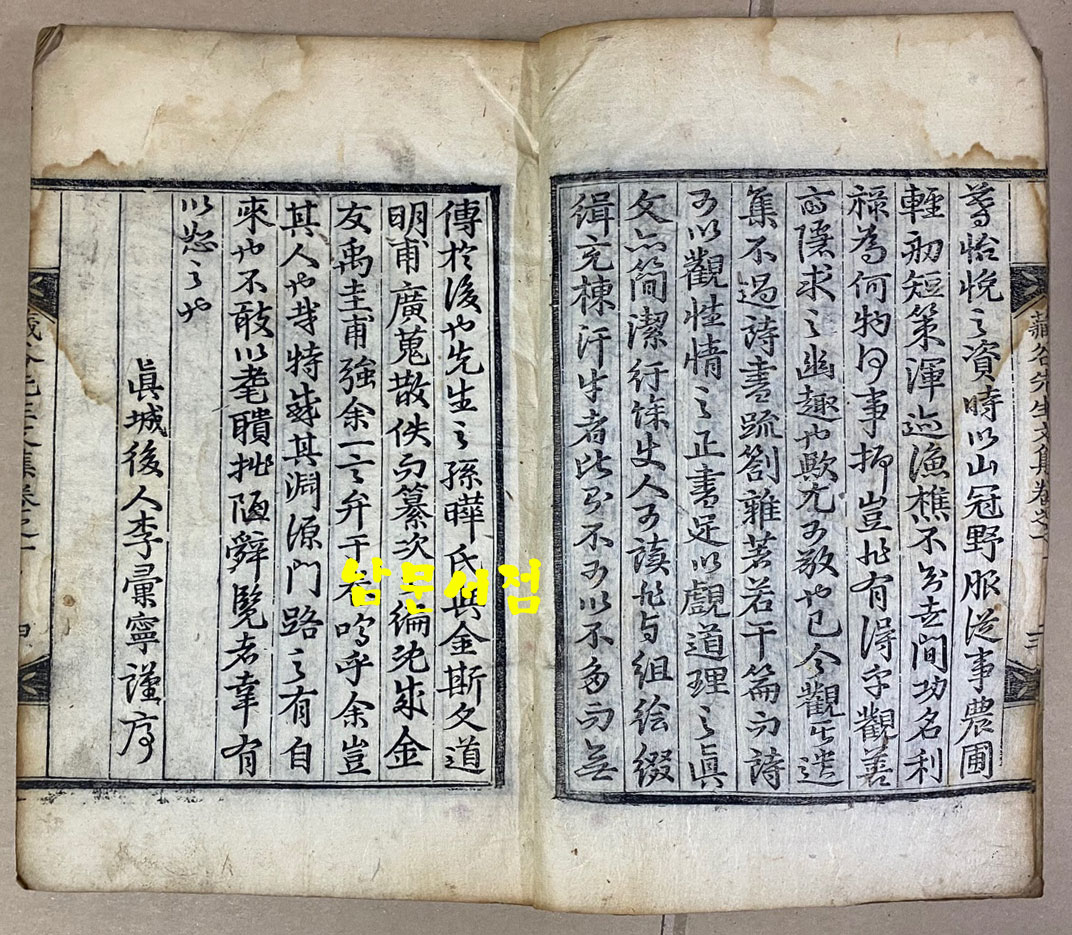 怡悅之資時以山冠野服從事農圃
輕舠短策渾迹漁樵不知世間功名利
祿為何物何事抑豈非有得乎觀善
隱求之幽趣也歟尤可敬也已今觀其遺
集不過詩書疏劄雜著若干篇而詩
可以觀性情之正書足以覰道理之眞
文亦簡潔行餘使人可讀非与組絵綴
緝充棟汗牛者比不可以不多而無
傳於後也先生之孫曄氏與金斯文道
明甫廣蒐散佚而纂次手編既成金
友禹圭甫強余一言弁于卷嗚呼余豈
其人也哉特感其淵源門路之有自
來也不敢以耄聵批陋辭覽者幸有
以恕之也
眞城後人李彙寧謹序
藏谷先生文集卷之一
三
藏谷先生文集卷之一
四
남문서점